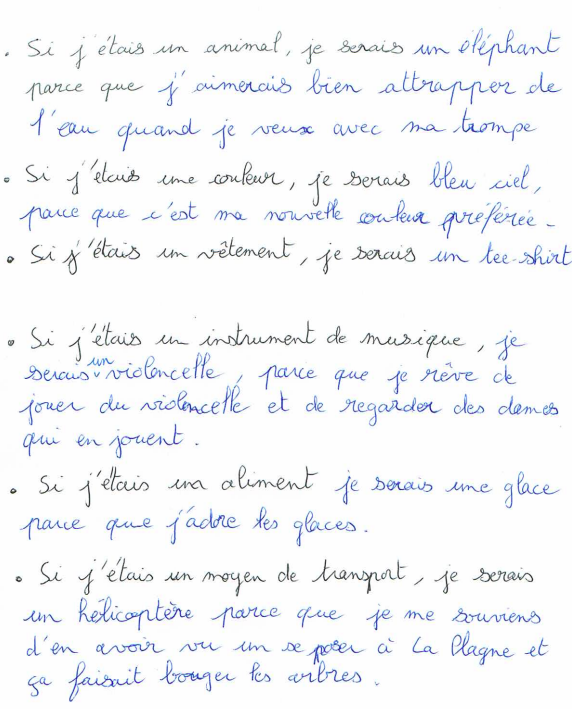 . Si j'étais un animal, je serais un éléphant
parce que j'aimerais bien attrapper de
l'eau quand je veux avec ma trompe
. Si j'étais une couleur, je serais bleu ciel,
parce que c'est ma nouvelle couleur préférée.
. Si j'étais un vêtement, je serais un tee-shirt
. Si j'étais un instrument de musique, je
serais un violoncelle, parce que je rêve de
jouer du violoncelle et de regarder des dames
qui en jouent.
. Si j'étais un aliment je serais une glace
parce que j'adore les glaces.
. Si j'étais un moyen de transport, je serais
un hélicoptère parce que je me souviens
d'en avoir vu un se poser à La Plagne et
ça faisait bouger les arbres.